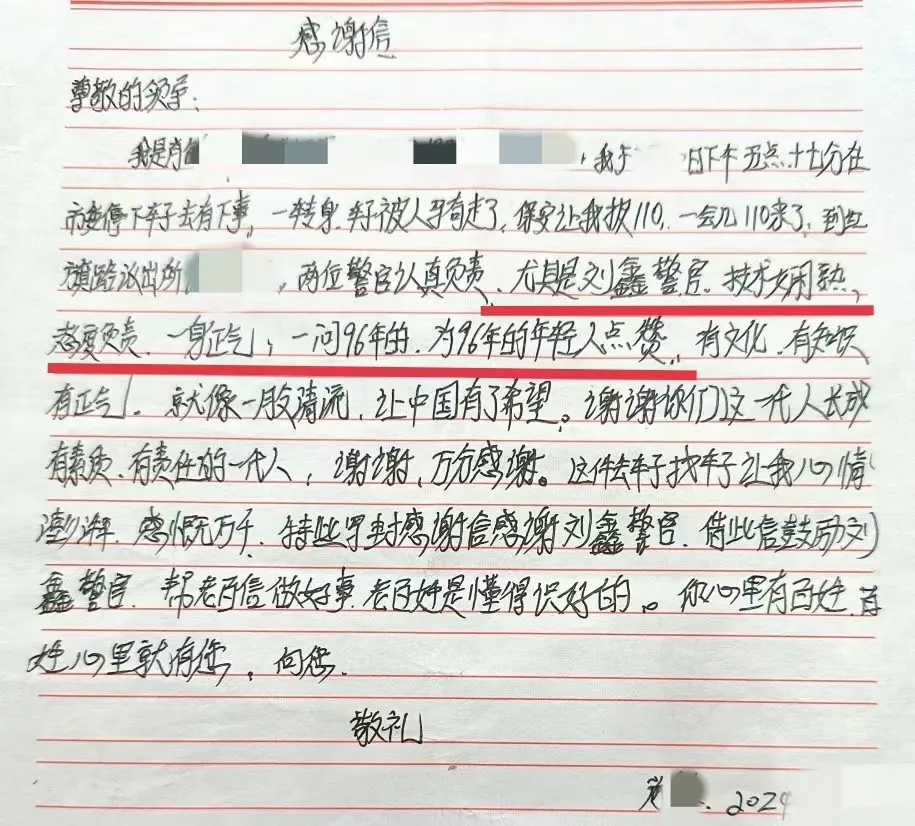 感谢信
尊敬的领导:
我是肖 ,我于 日下午五点十七分在
市委停下车子去有下事,一转身,车子被人骑走了,保安让我拨110,一会儿110来了,到红
旗路派出所 ,两位警官认真负责,尤其是刘鑫警官,技术娴熟,
态度负责,一身正气,一问96年的,为96年的年轻人点赞,有文化,有知识
有正气,就像一股清流,让中国有了希望。谢谢你们这一代人长成
有素质、有责任的一代人,谢谢,万分感谢。这件丢车子找车子让我心情
澎湃,感慨万千,特此写封感谢信感谢刘鑫警官,借此信鼓励刘
鑫警官,帮老百信做好事,老百姓是懂得识好的。你心里有百姓,百
姓心里就有您,向您,
敬礼
2024